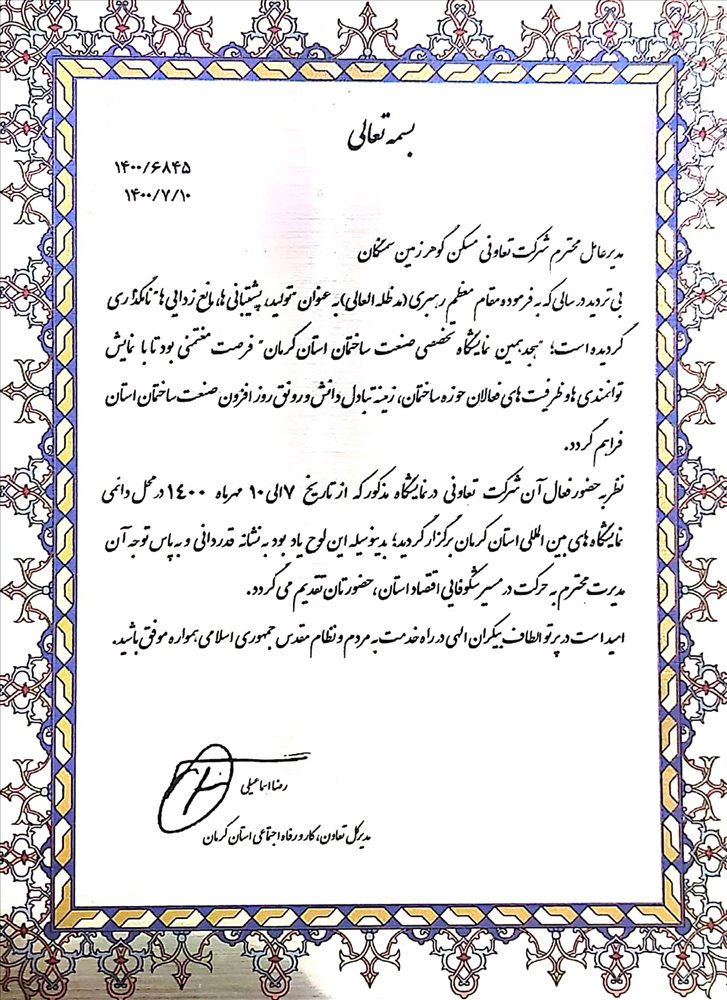 بسمه تعالی
۱۴۰۰/۶۸۴۵
۱۴۰۰/۷/۱۰
مدیرعامل محترم شرکت تعاونی مسکن گوهر زمین سمنگان
بی تردید در سالی که به فرموده مقام معظم رهبری (مدظله العالی) به عنوان "تولید، پشتیبانی ها، مانع زدایی ها" نامگذاری
گردیده است؛ "هجدهمین نمایشگاه تخصصی صنعت ساختمان استان کرمان" فرصت مغتنمی بود تا با نمایش
توانمندی ها و ظرفیت های فعالان حوزه ساختمان، زمینه تبادل دانش و رونق روز افزون صنعت ساختمان استان
فراهم گردد.
نظر به حضور فعال آن شرکت تعاونی در نمایشگاه مذکور که از تاریخ ۷ الی ۱۰ مهرماه ۱۴۰۰ در محل دائمی
نمایشگاه های بین المللی استان کرمان برگزار گردید؛ بدینوسیله این لوح یاد بود به نشانه قدردانی و به پاس توجه آن
مدیریت محترم به حرکت در مسیر شکوفایی اقتصاد استان، حضورتان تقدیم می گردد.
امید است در پرتو الطاف بیکران الهی در راه خدمت به مردم و نظام مقدس جمهوری اسلامی همواره موفق باشید.
رضا اسماعیلی
مدیرکل تعاون، کار و رفاه اجتماعی استان کرمان